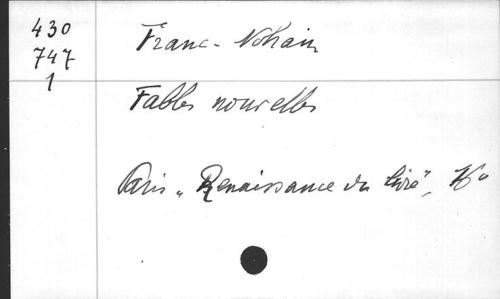 430
747
1
Franc-Nohain
Fables nouvelles
Paris „Renaissance du livre”, 16°